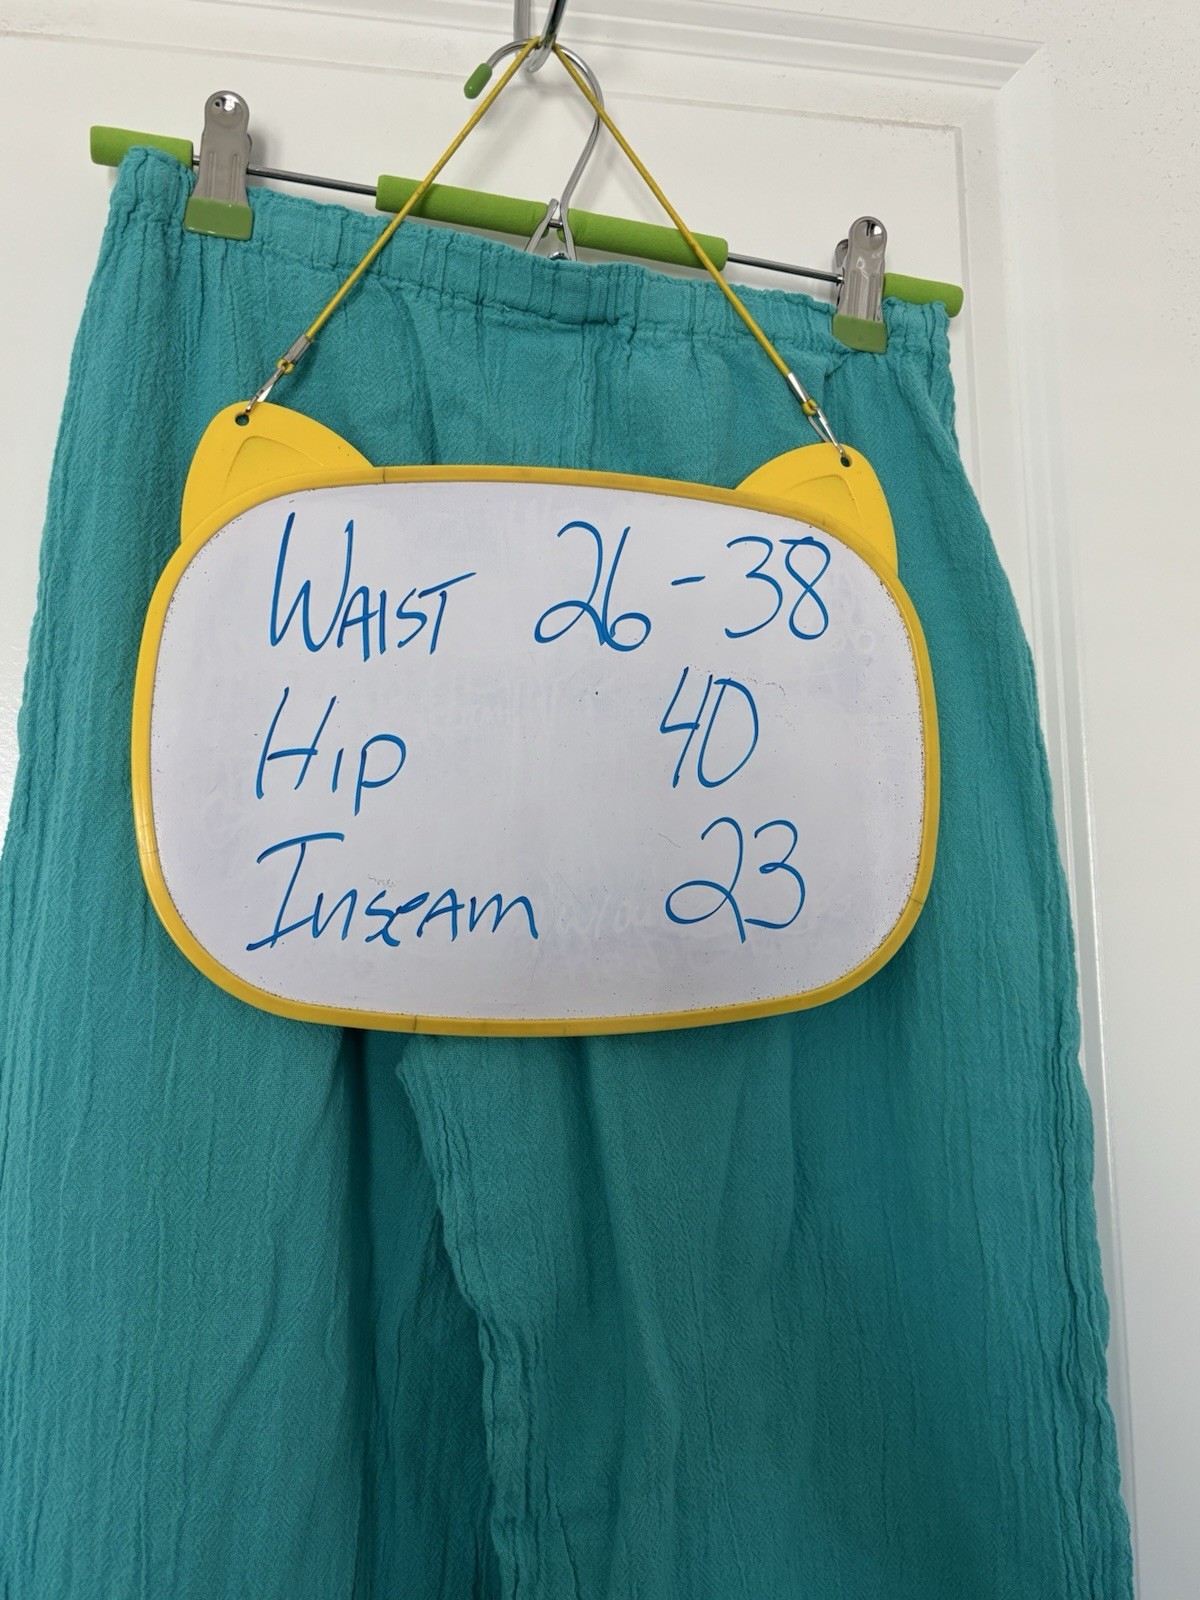 WAIST 26-38
HIP 40
INSEAM 23